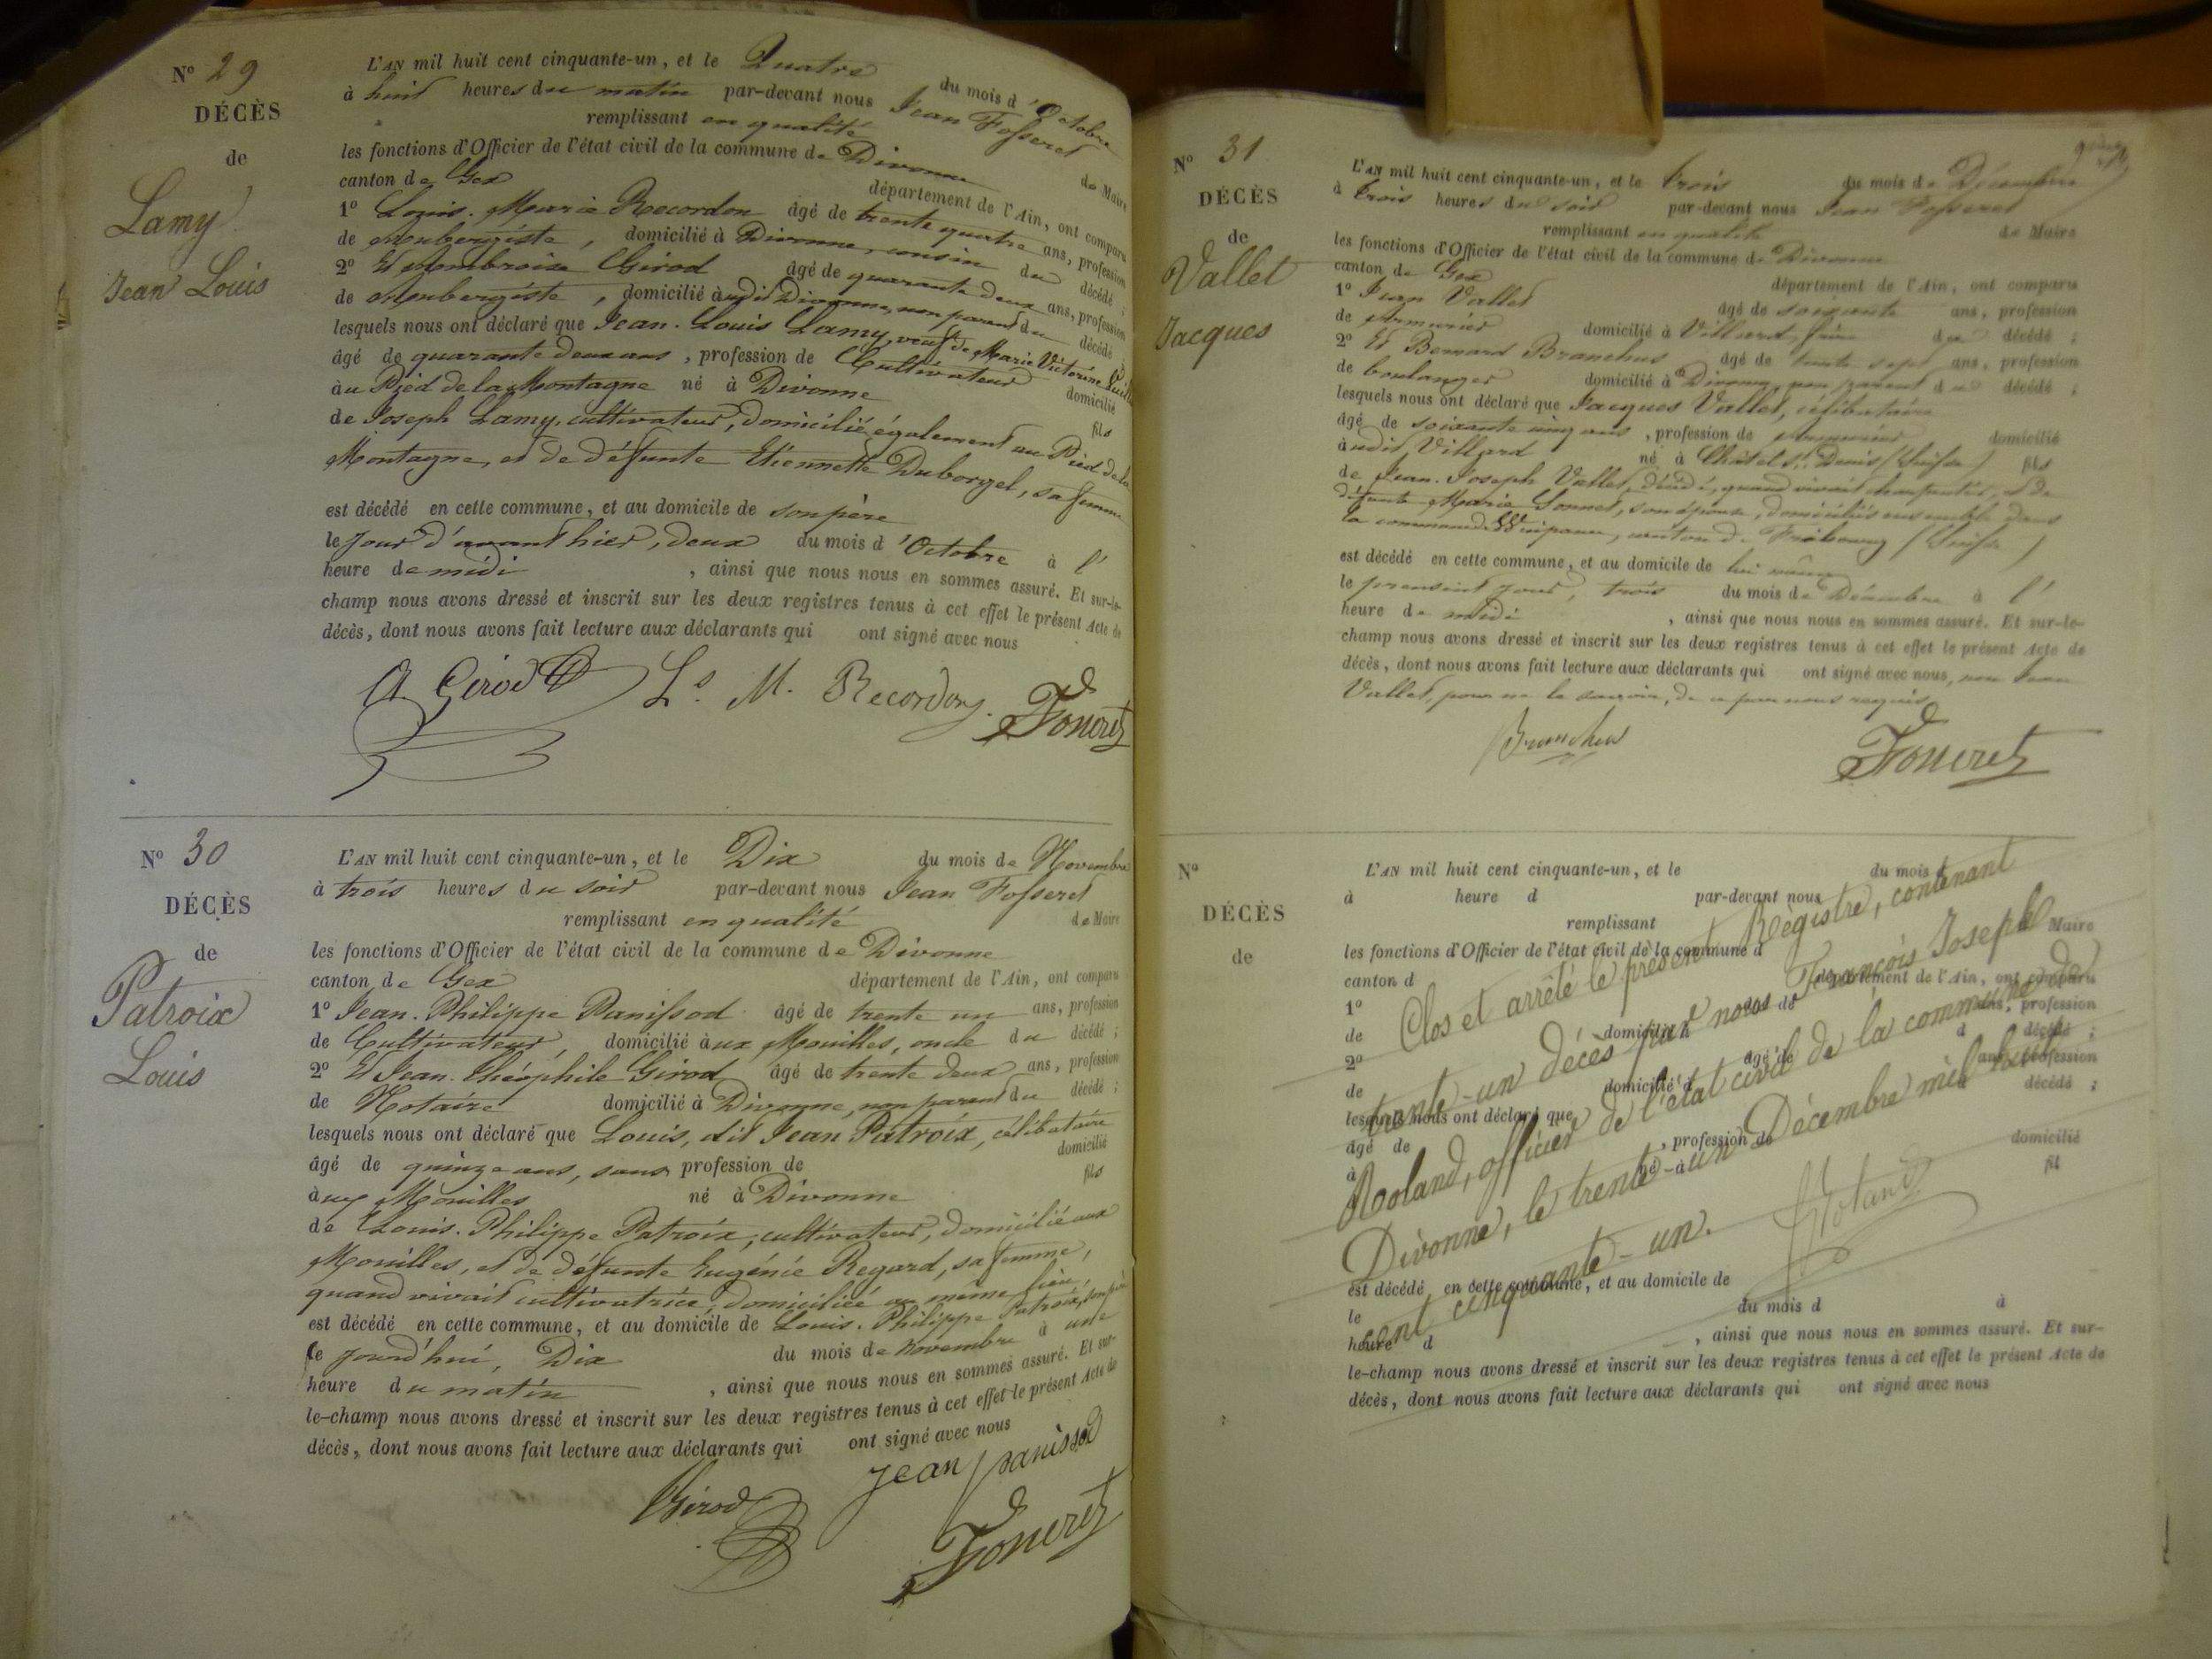 N° 29
DÉCÈS
de
Lamy
Jean Louis
L'AN mil huit cent cinquante-un, et le Quatre du mois d'Octobre
à huit heures du matin par-devant nous Jean Fosseret
remplissant en qualité de Maire
les fonctions d'Officier de l'état civil de la commune de Divonne
canton de Gex département de l'Ain, ont comparu
1° Louis. Marie Recordon âgé de trente quatre ans, profession
de Aubergiste, domicilié à Divonne, cousin du décédé ;
2° Et Ambroise Girod âgé de quarante deux ans, profession
de Aubergiste, domicilié audit Divonne, non parent du décédé ;
lesquels nous ont déclaré que Jean. Louis Lamy, veuf de Marie Victorine
âgé de quarante deux ans, profession de Cultivateur domicilié
au Pied de la Montagne né à Divonne fils
de Joseph Lamy, cultivateur, domicilié également au Pied de la
Montagne, et de défunte Etiennette Duborgel, sa femme
est décédé en cette commune, et au domicile de son père
le jour d'avant hier, deux du mois d'Octobre à l'
heure de midi, ainsi que nous nous en sommes assuré. Et sur-le-
champ nous avons dressé et inscrit sur les deux registres tenus à cet effet le présent Acte de
décès, dont nous avons fait lecture aux déclarants qui ont signé avec nous
A Girod Ls M. Recordon Fosseret
N° 30
DÉCÈS
de
Patroix
Louis
L'AN mil huit cent cinquante-un, et le Dix du mois de Novembre
à trois heures du soir par-devant nous Jean Fosseret
remplissant en qualité de Maire
les fonctions d'Officier de l'état civil de la commune de Divonne
canton de Gex département de l'Ain, ont comparu
1° Jean. Philippe Panissod âgé de trente un ans, profession
de Cultivateur, domicilié aux Mouilles, oncle du décédé ;
2° Et Jean. Théophile Girod âgé de trente deux ans, profession
de Notaire domicilié à Divonne, non parent du décédé ;
lesquels nous ont déclaré que Louis, dit Jean Patroix, célibataire
âgé de quinze ans, sans profession de domicilié
aux Mouilles né à Divonne fils
de Louis. Philippe Patroix, cultivateur, domicilié aux
Mouilles, et de défunte Eugénie Regard, sa femme,
quand vivait cultivatrice, domiciliée au même lieu,
est décédé en cette commune, et au domicile de Louis. Philippe Patroix, son père
le jourd'hui, Dix du mois de Novembre à une
heure du matin, ainsi que nous nous en sommes assuré. Et sur-
le-champ nous avons dressé et inscrit sur les deux registres tenus à cet effet le présent Acte de
décès, dont nous avons fait lecture aux déclarants qui ont signé avec nous
Jean panissod
Girod Fosseret
N° 31
DÉCÈS
de
Vallet
Jacques
L'AN mil huit cent cinquante-un, et le trois du mois de Décembre
à trois heures du soir par-devant nous Jean Fosseret
remplissant en qualité de Maire
les fonctions d'Officier de l'état civil de la commune de Divonne
canton de Gex département de l'Ain, ont comparu
1° Jean Vallet âgé de soixante ans, profession
de Armurier domicilié à Villard, frère du décédé ;
2° Et Bernard Branchus âgé de trente sept ans, profession
de boulanger domicilié à Divonne, non parent du décédé ;
lesquels nous ont déclaré que Jacques Vallet, célibataire
âgé de soixante cinq ans, profession de Armurier domicilié
audit Villard né à Châtel St. Denis (Suisse) fils
de Jean. Joseph Vallet, décédé, quand vivait charpentier, et de
défunte Marie Sonnet, son épouse, domiciliés ensemble dans
la commune de canton de Fribourg (Suisse)
est décédé en cette commune, et au domicile de lui même
le présent jour, trois du mois de Décembre à l'
heure de midi, ainsi que nous nous en sommes assuré. Et sur-le-
champ nous avons dressé et inscrit sur les deux registres tenus à cet effet le présent Acte de
décès, dont nous avons fait lecture aux déclarants qui ont signé avec nous, non Jean
Vallet, pour ne le savoir, de ce par nous requis
Fosseret
N°
DÉCÈS
de
L'AN mil huit cent cinquante-un, et le du mois d
à heure d par-devant nous
remplissant Maire
les fonctions d'Officier de l'état civil de la commune d
canton d département de l'Ain, ont comparu
1° âgé de ans, profession
de domicilié à d décédé ;
2° âgé de ans, profession
de domicilié à d décédé ;
lesquels nous ont déclaré que
âgé de , profession de domicilié
à né à fil
d
est décédé en cette commune, et au domicile de
le du mois d à
heure d , ainsi que nous nous en sommes assuré. Et sur-
le-champ nous avons dressé et inscrit sur les deux registres tenus à cet effet le présent Acte de
décès, dont nous avons fait lecture aux déclarants qui ont signé avec nous
Clos et arrêté le présent Régistre, contenant
trente-un décès par nous François Joseph
Rooland, officier de l'état civil de la commune de
Divonne, le trente-un Décembre mil huit
cent cinquante-un.